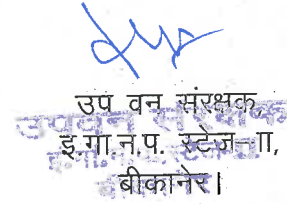 उप वन संरक्षक,
इ.गा.न.प. स्टेज-II,
बीकानेर।